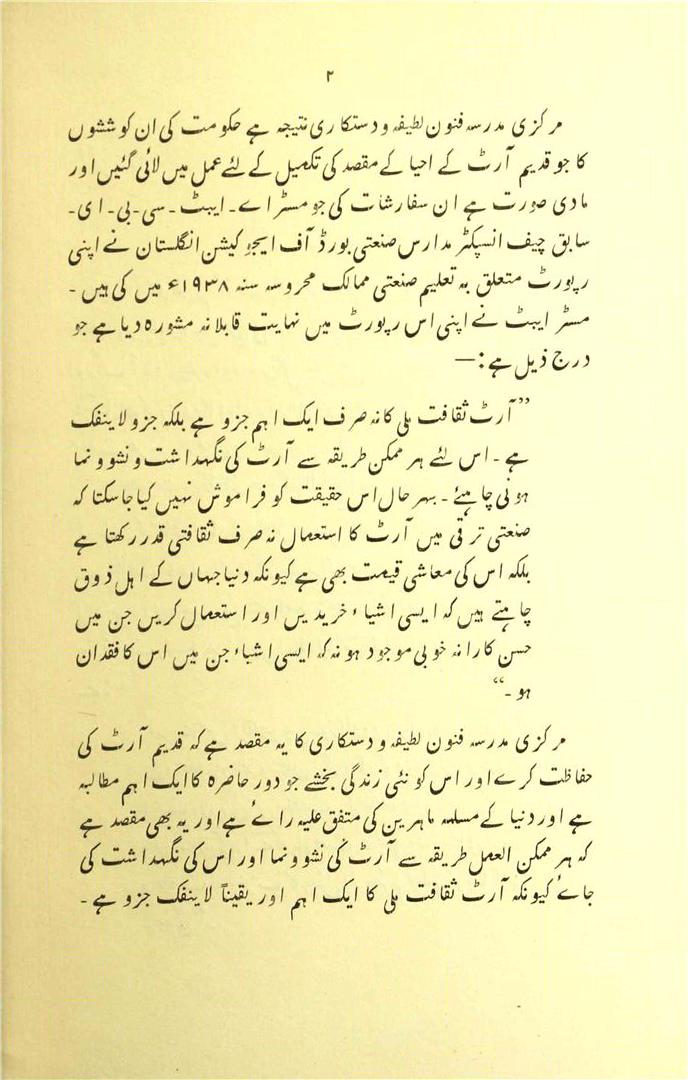 ۲
مرکزی مدرسہ فنون لطیفہ و دستکاری نتیجہ ہے حکومت کی ان کوششوں
کا جو قدیم آرٹ کے احیا کے مقصد کی تکمیل کے لئے عمل میں لائی گئیں اور
مادی صورت ہے ان سفارشات کی جو مسٹر اے۔ ایبٹ۔ سی۔ بی۔ ای۔
سابق چیف انسپکٹر مدارس صنعتی بورڈ آف ایجوکیشن انگلستان نے اپنی
رپورٹ متعلق بہ تعلیم صنعتی ممالک محروسہ سنہ ۱۹۳۸ء میں کی ہیں۔
مسٹر ایبٹ نے اپنی اس رپورٹ میں نہایت قابلانہ مشورہ دیا ہے جو
درج ذیل ہے:—
”آرٹ ثقافت ملی کا نہ صرف ایک اہم جزو ہے بلکہ جزو لاینفک
ہے۔ اس لئے ہر ممکن طریقہ سے آرٹ کی نگہداشت و نشو و نما
ہونی چاہئے۔ بہر حال اس حقیقت کو فراموش نہیں کیا جاسکتا کہ
صنعتی ترقی میں آرٹ کا استعمال نہ صرف ثقافتی قدر رکھتا ہے
بلکہ اس کی معاشی قیمت بھی ہے کیونکہ دنیا جہاں کے اہل ذوق
چاہتے ہیں کہ ایسی اشیاء خریدیں اور استعمال کریں جن میں
حسن کارانہ خوبی موجود ہو نہ کہ ایسی اشیاء جن میں اس کا فقدان
ہو۔“
مرکزی مدرسہ فنون لطیفہ و دستکاری کا یہ مقصد ہے کہ قدیم آرٹ کی
حفاظت کرے اور اس کو نئی زندگی بخشے جو دور حاضرہ کا ایک اہم مطالبہ
ہے اور دنیا کے مسلمہ ماہرین کی متفق علیہ رائے ہے اور یہ بھی مقصد ہے
کہ ہر ممکن العمل طریقہ سے آرٹ کی نشو و نما اور اس کی نگہداشت کی
جائے کیونکہ آرٹ ثقافت ملی کا ایک اہم اور یقیناً لاینفک جزو ہے۔